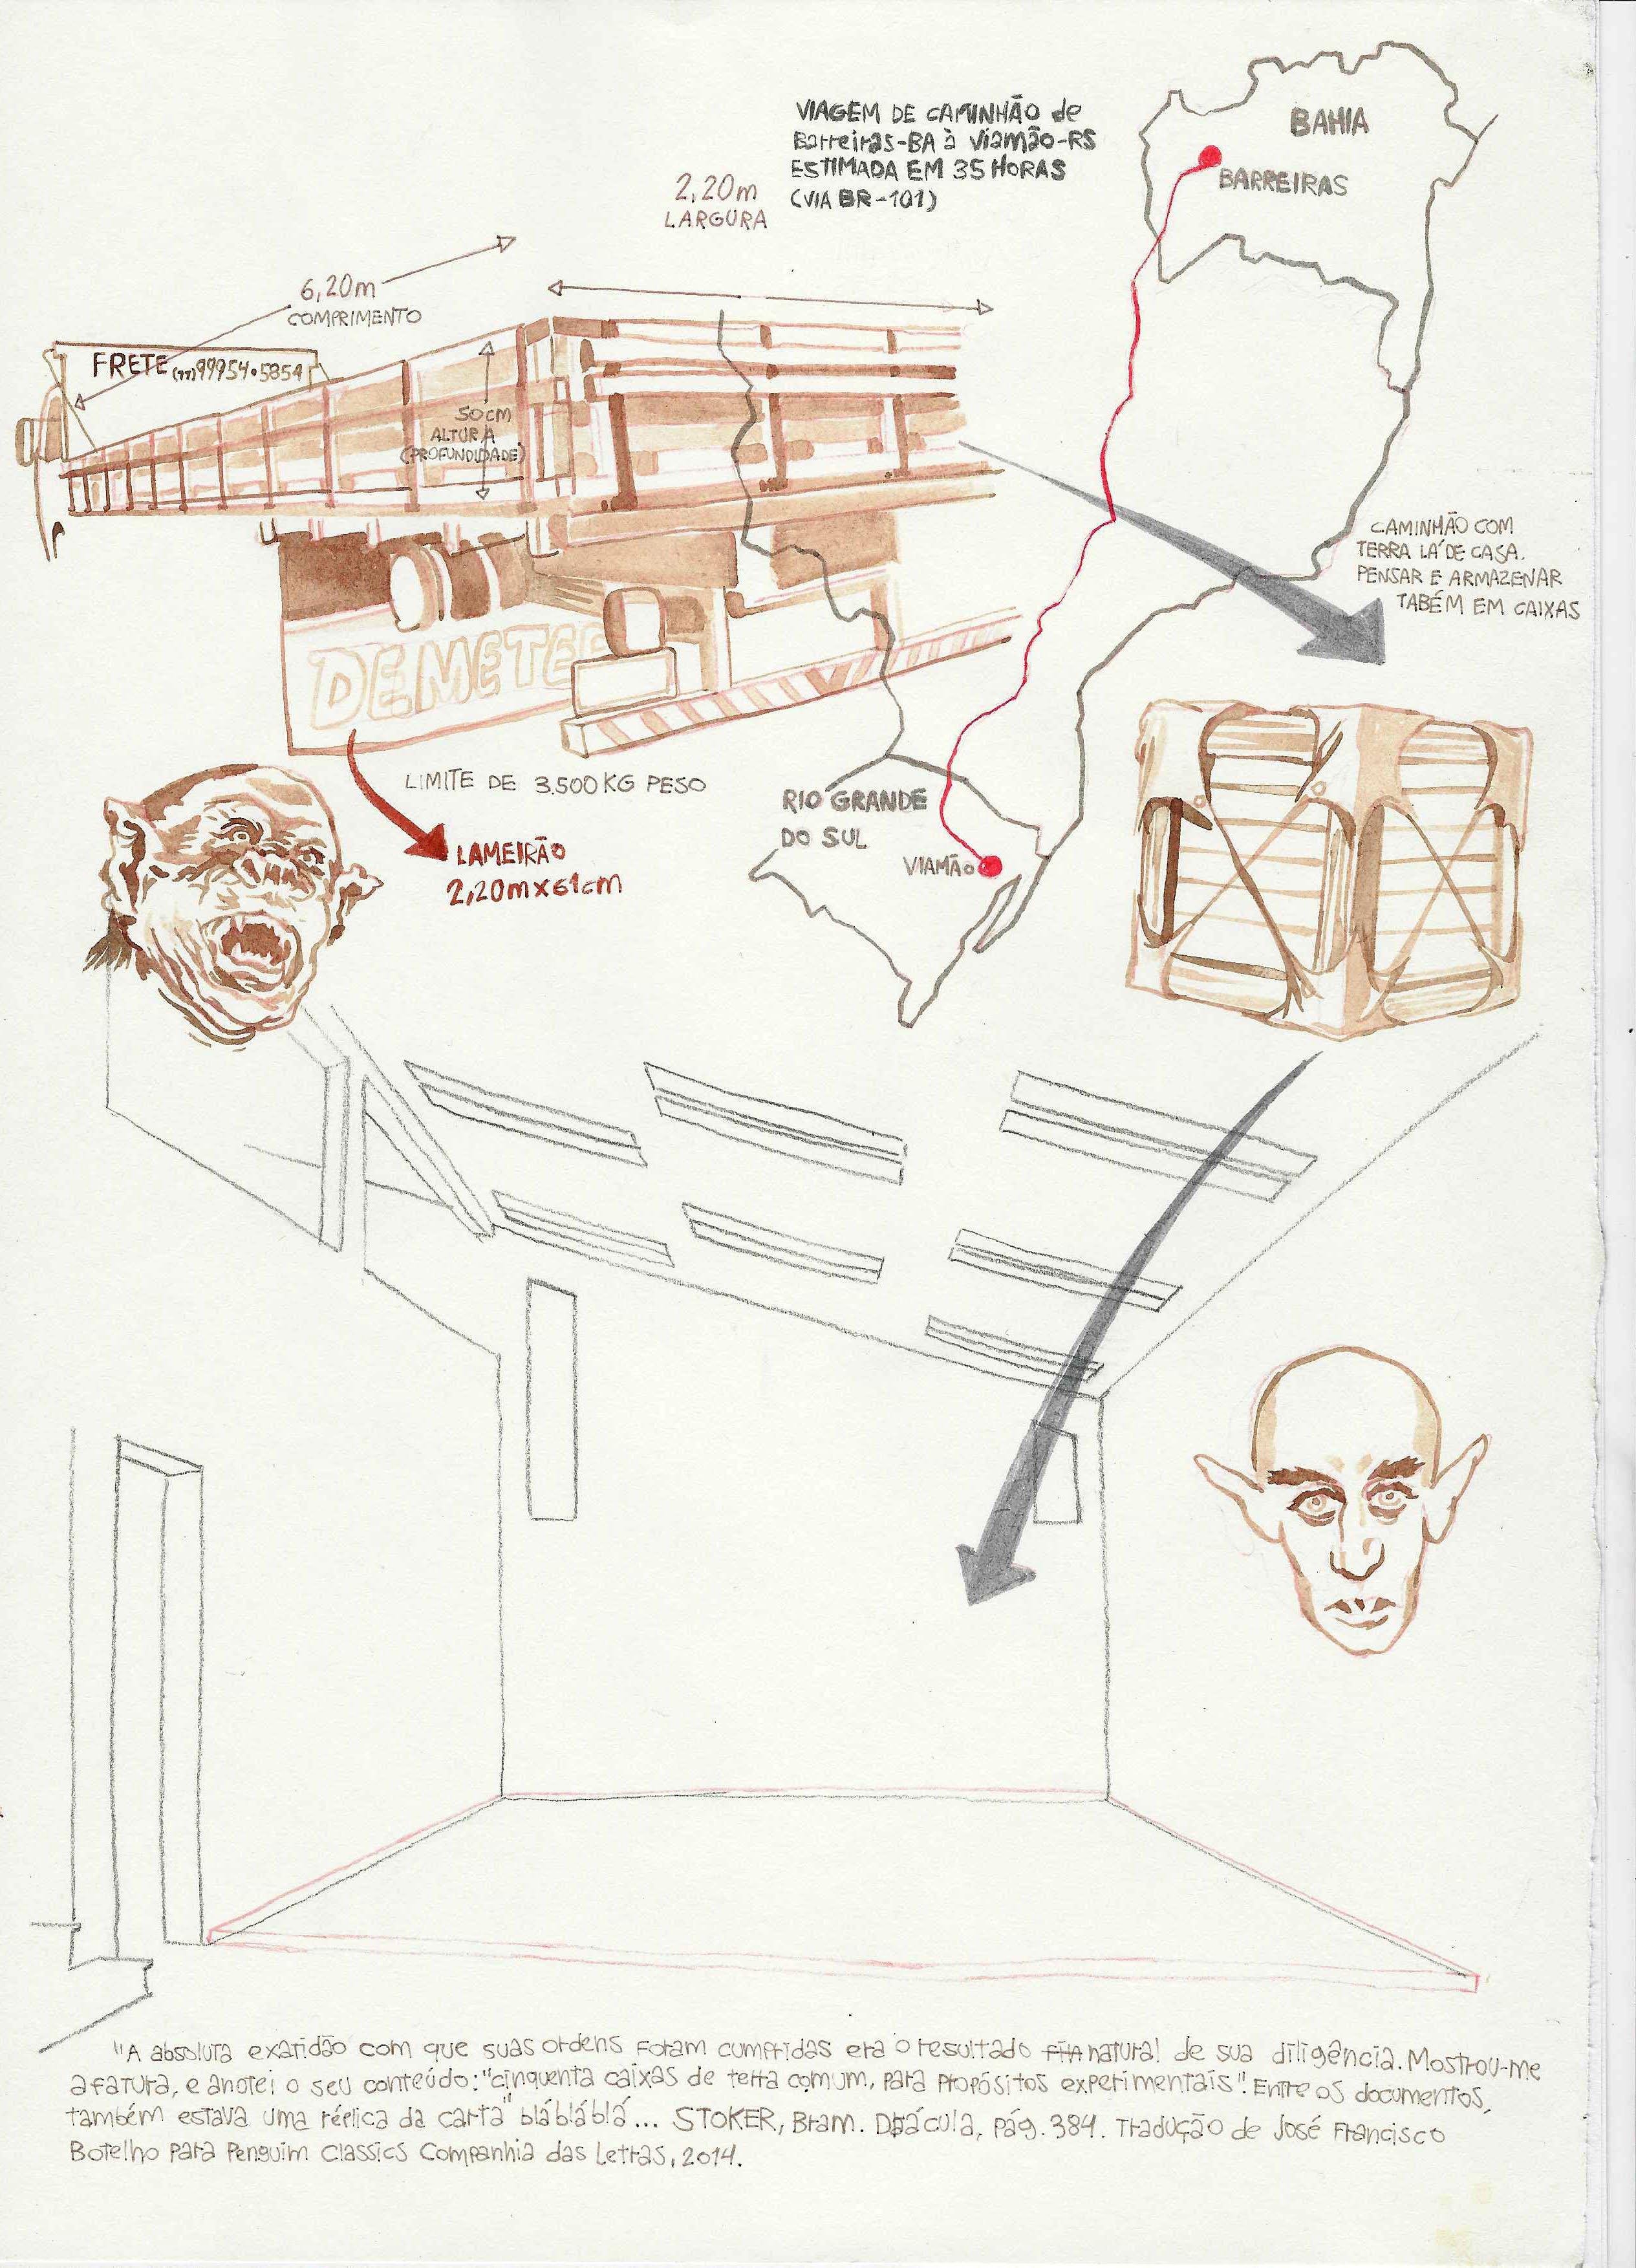 VIAGEM DE CAMINHÃO de
Barreiras-BA à Viamão-RS
ESTIMADA EM 35 HORAS
(VIA BR-101)
BAHIA
BARREIRAS
2,20m
LARGURA
6,20m
COMPRIMENTO
FRETE (77)99954•5854
50CM
ALTURA
(PROFUNDIDADE)
CAMINHÃO COM
TERRA LÁ DE CASA.
PENSAR E ARMAZENAR
TABÉM EM CAIXAS
DEMETER
LIMITE DE 3.500KG PESO
LAMEIRÃO
2,20mx61cm
RIO GRANDE
DO SUL
VIAMÃO
"A absoluta exatidão com que suas ordens foram cumpridas era o resultado natural de sua diligência. Mostrou-me
a fatura, e anotei o seu conteúdo: "cinquenta caixas de terra comum, para propósitos experimentais". Entre os documentos,
também estava uma réplica da carta" bláblábla... STOKER, Bram. Drácula, pág. 384. Tradução de José Francisco
Botelho para Penguim Classics Companhia das Letras, 2014.